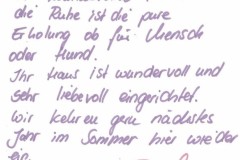 die Ruhe ist die pure
Erholung ob für Mensch
oder Hund.
Ihr Haus ist wundervoll und
sehr liebevoll eingerichtet.
Wir kehren gern nächstes
Jahr im Sommer hier wieder
ein.